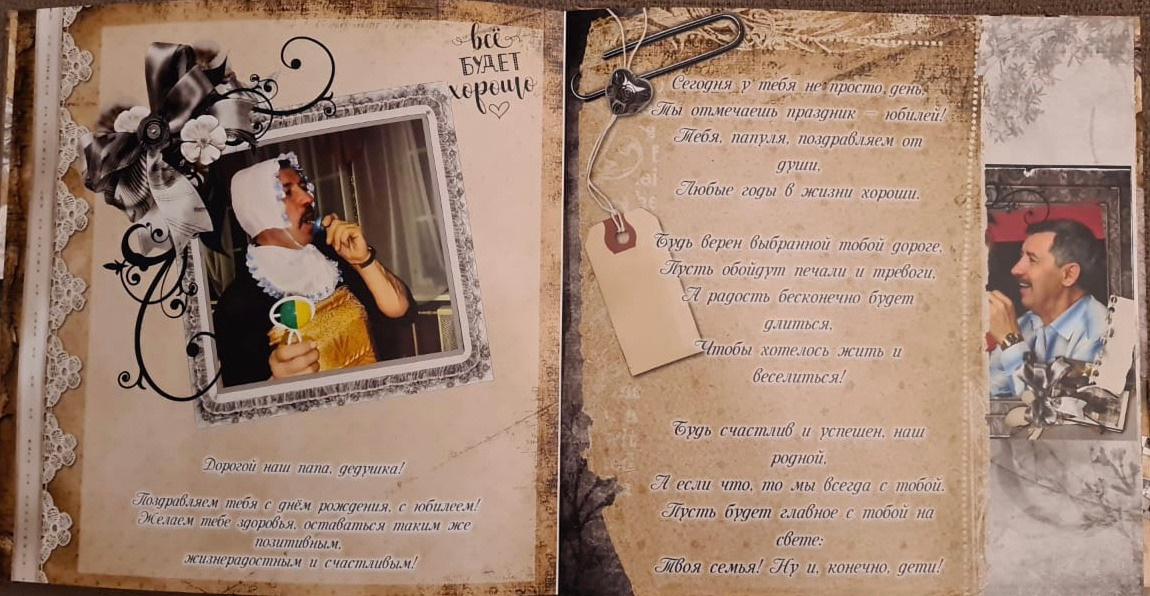 всё
БУДЕТ
хорошо
Дорогой наш папа, дедушка!
Поздравляем тебя с днём рождения, с юбилеем!
Желаем тебе здоровья, оставаться таким же
позитивным,
жизнерадостным и счастливым!
Сегодня у тебя не просто день,
Ты отмечаешь праздник – юбилей!
Тебя, папуля, поздравляем от
души,
Любые годы в жизни хороши.
Будь верен выбранной тобой дороге,
Пусть обойдут печали и тревоги,
А радость бесконечно будет
длиться,
Чтобы хотелось жить и
веселиться!
Будь счастлив и успешен, наш
родной,
А если что, то мы всегда с тобой.
Пусть будет главное с тобой на
свете:
Твоя семья! Ну и, конечно, дети!